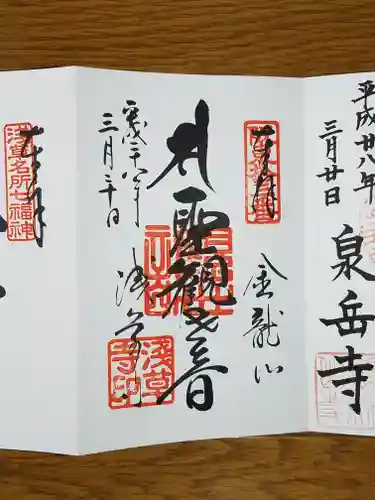 平成廿八年
三月廿日
泉岳寺
奉拝
金龍山
聖観世音
浅草寺
平成二十八年
三月二十日
浅草
寺印
奉拝
浅草名所七福神